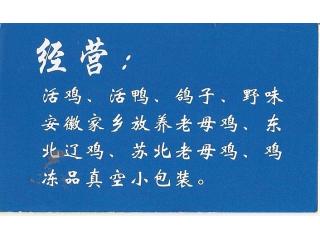 经营：
活鸡、活鸭、鸽子、野味
安徽家乡放养老母鸡、东
北辽鸡、苏北老母鸡、鸡
冻品真空小包装。